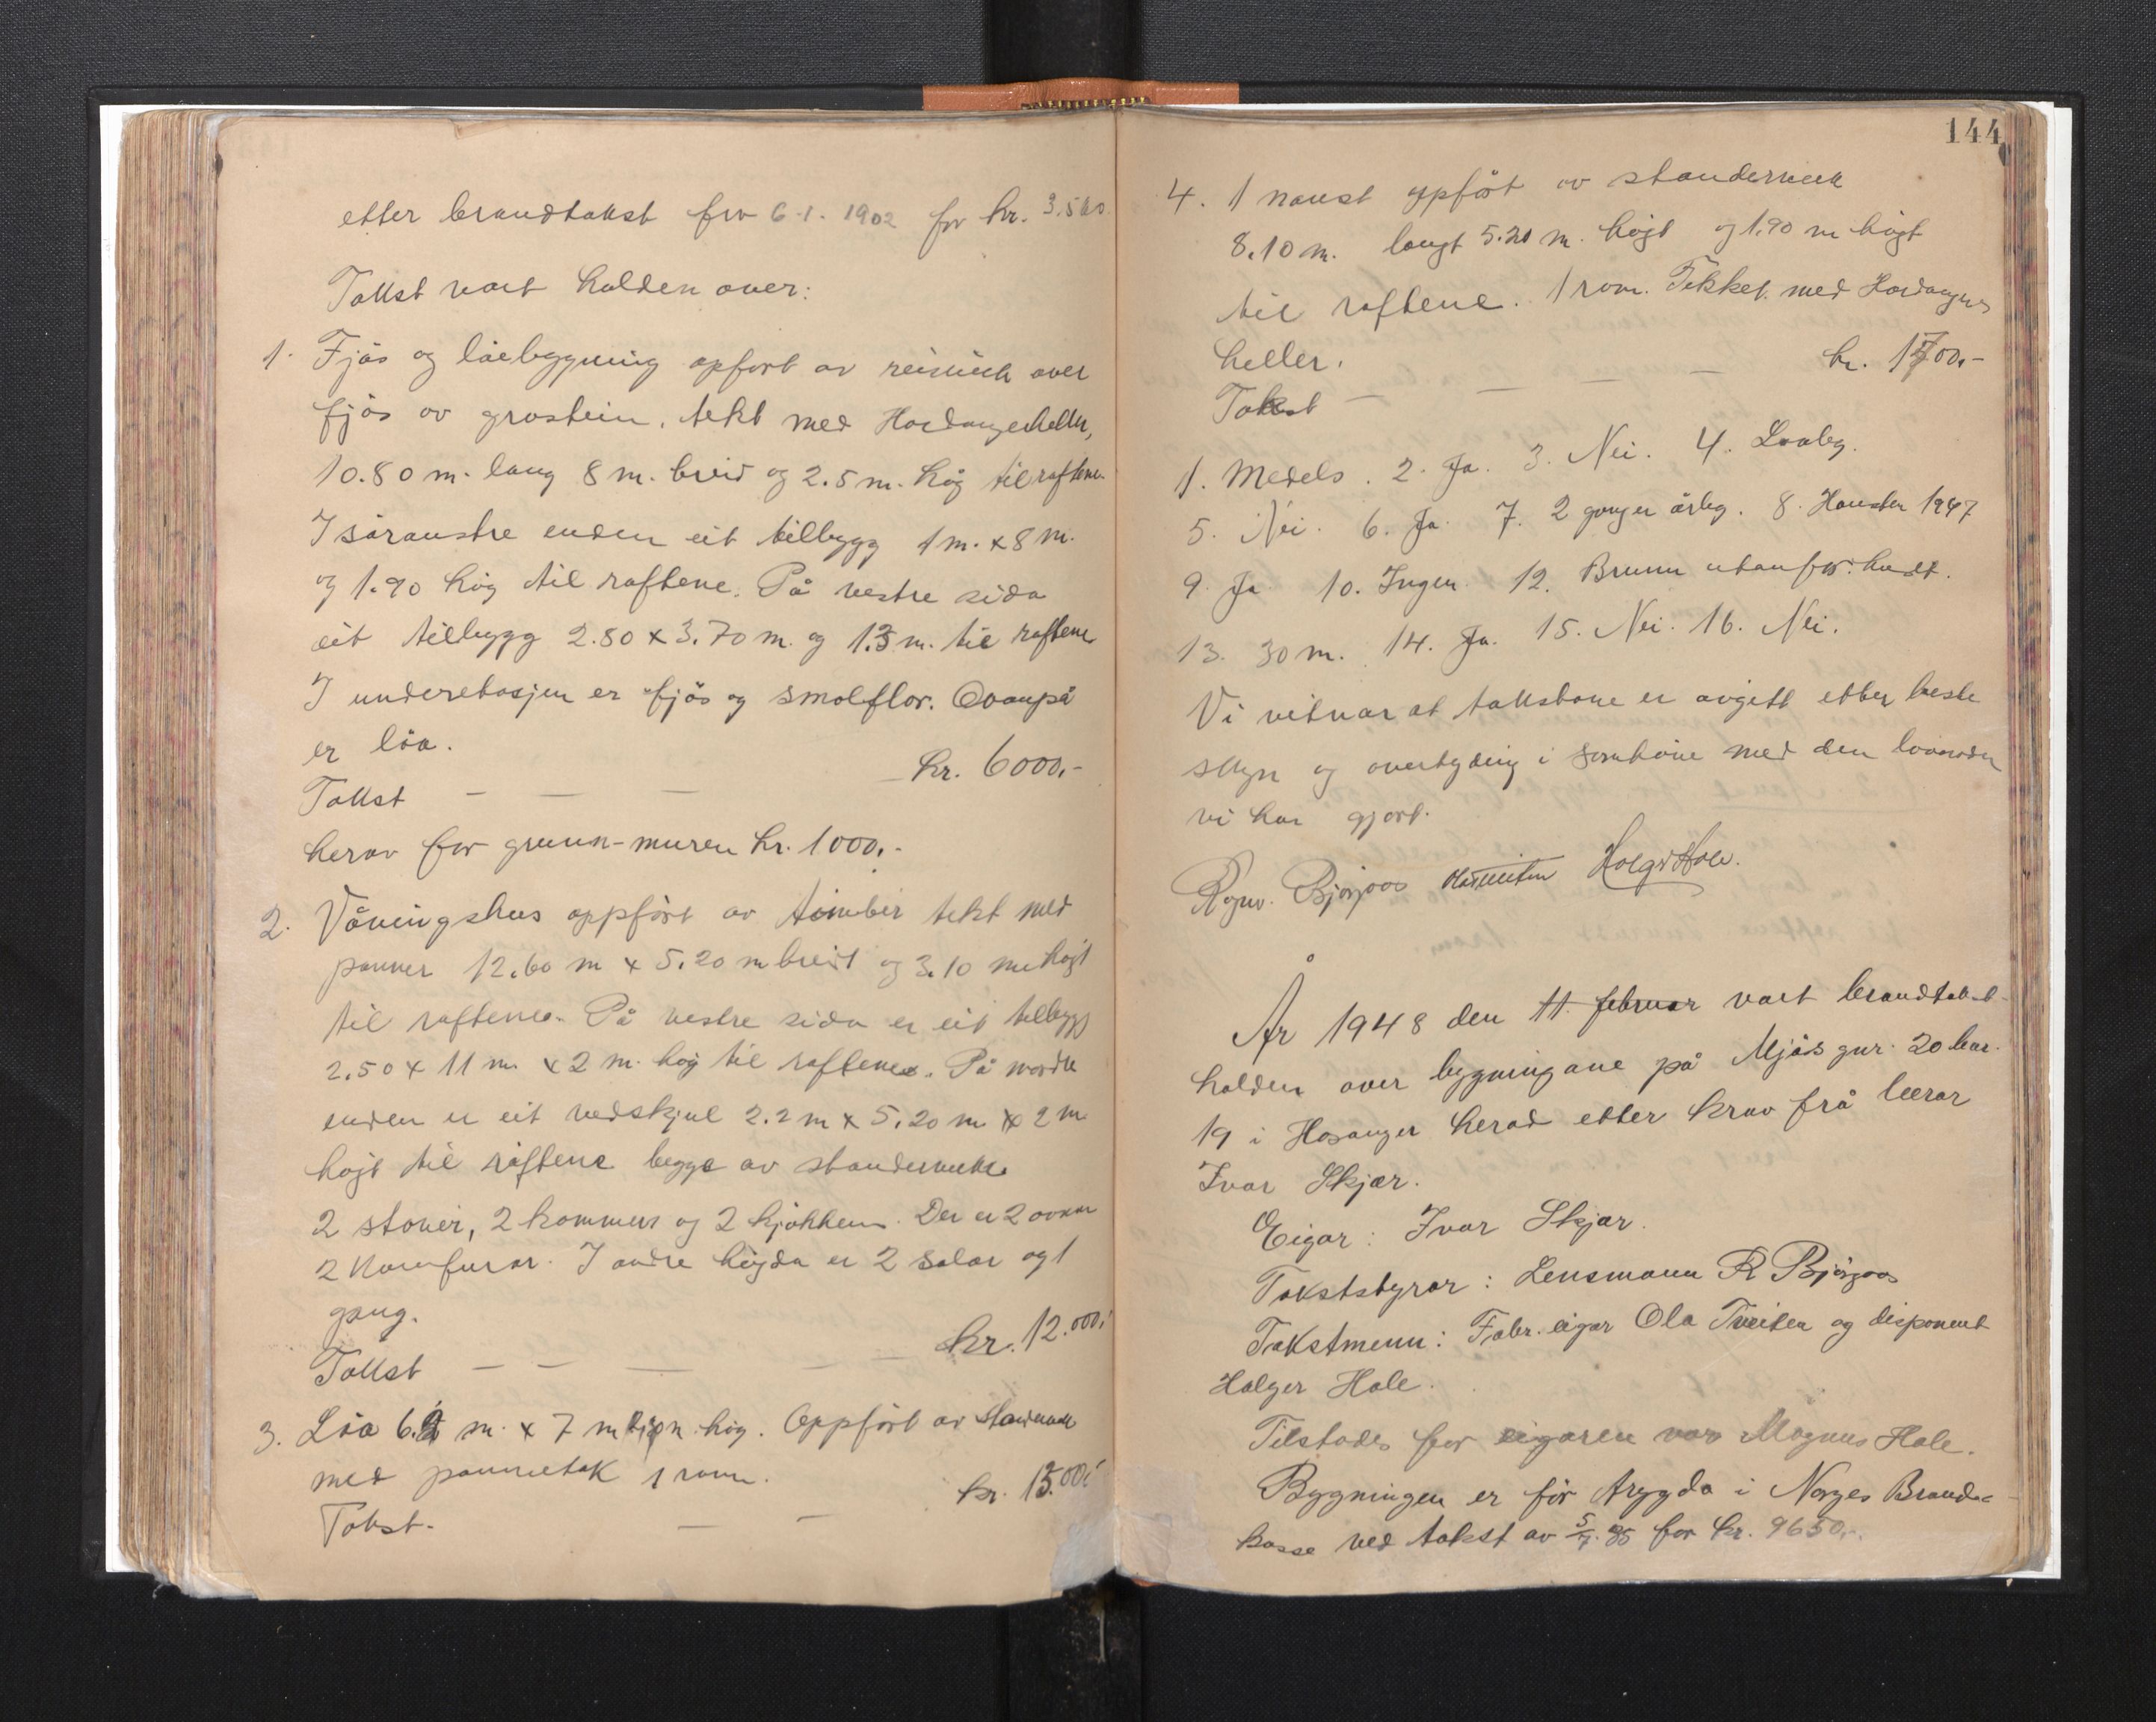 etter brandtakst fra 6.1. 1902 for kr. 3.500
Takst vart halden over:
1. Fjøs og løebygning opført av reisverk over
fjøs av gråstein, tekt med Hardangerheller,
10.80 m. lang 8 m. breid og 2.5 m. høg til raftene.
I søraustre enden eit tilbygg 1 m. x 8 m.
og 1.90 høg til raftene. På vestre sida
eit tilbygg 2.80 x 3.70 m. og 1.3 m. til raftene
I underetasjen er fjøs og smalflor. Ovanpå
er løa.
Takst — — — kr. 6000.-
herav for grunn-muren kr. 1000.-
2. Våningshus oppført av timber tekt med
panner 12.60 m x 5.20 m breidt og 3.10 m høgt
til raftene. På vestre sida er eit tilbygg
2.50 x 11 m x 2 m. høg til raftene. På nordre
enden er eit vedskjul 2.2 m x 5.20 m x 2 m
høgt til raftene begge av standerverk.
2 stover, 2 kammers og 2 kjøkken. Der er 2 ovnar
2 komfurar. I andre høgda er 2 salar og 1
gang.
Takst — — — — — kr. 12.000.-
3. Løa 6. m. x 7 m høg. Oppført av standerverk
med pannetak 1 rom.
Takst. — — kr. 1500.-
144
4. 1 naust oppført av standerverk
8.10 m. langt 5.20 m. høgt og 1.90 m høgt
til raftene. 1 rom. Tekket med Hardanger
heller.
Takst — — — — kr. 1700.-
1. Medels. 2. Ja. 3. Nei. 4. Lovleg.
5. Nei. 6. Ja. 7. 2 gonger årleg. 8. Hausten 1947
9. Ja 10. Ingen. 12. Brunn utanfor huset.
13. 30 m. 14. Ja. 15. Nei. 16. Nei.
Vi vitnar at takstane er avgitt etter beste
skyn og overtyding i samhøve med den lovnaden
vi har gjort.
Ragnv. Bjørgaas Ola Tveiten Holger Hole.
År 1948 den 11. februar vart brandtakst
halden over bygningane på Mjøs gnr. 20 bnr.
19 i Hosanger herad etter krav frå lærar
Ivar Skjær.
Eigar: Ivar Skjær.
Takststyrar: Lensmann R Bjørgaas
Takstmenn: Fabr. eigar Ola Tveiten og disponent
Holger Hole.
Tilstades for eigaren var Magnus Hole.
Bygningen er før trygda i Norges Brand-
kasse ved takst av 5/7. 35 for kr. 9650.-